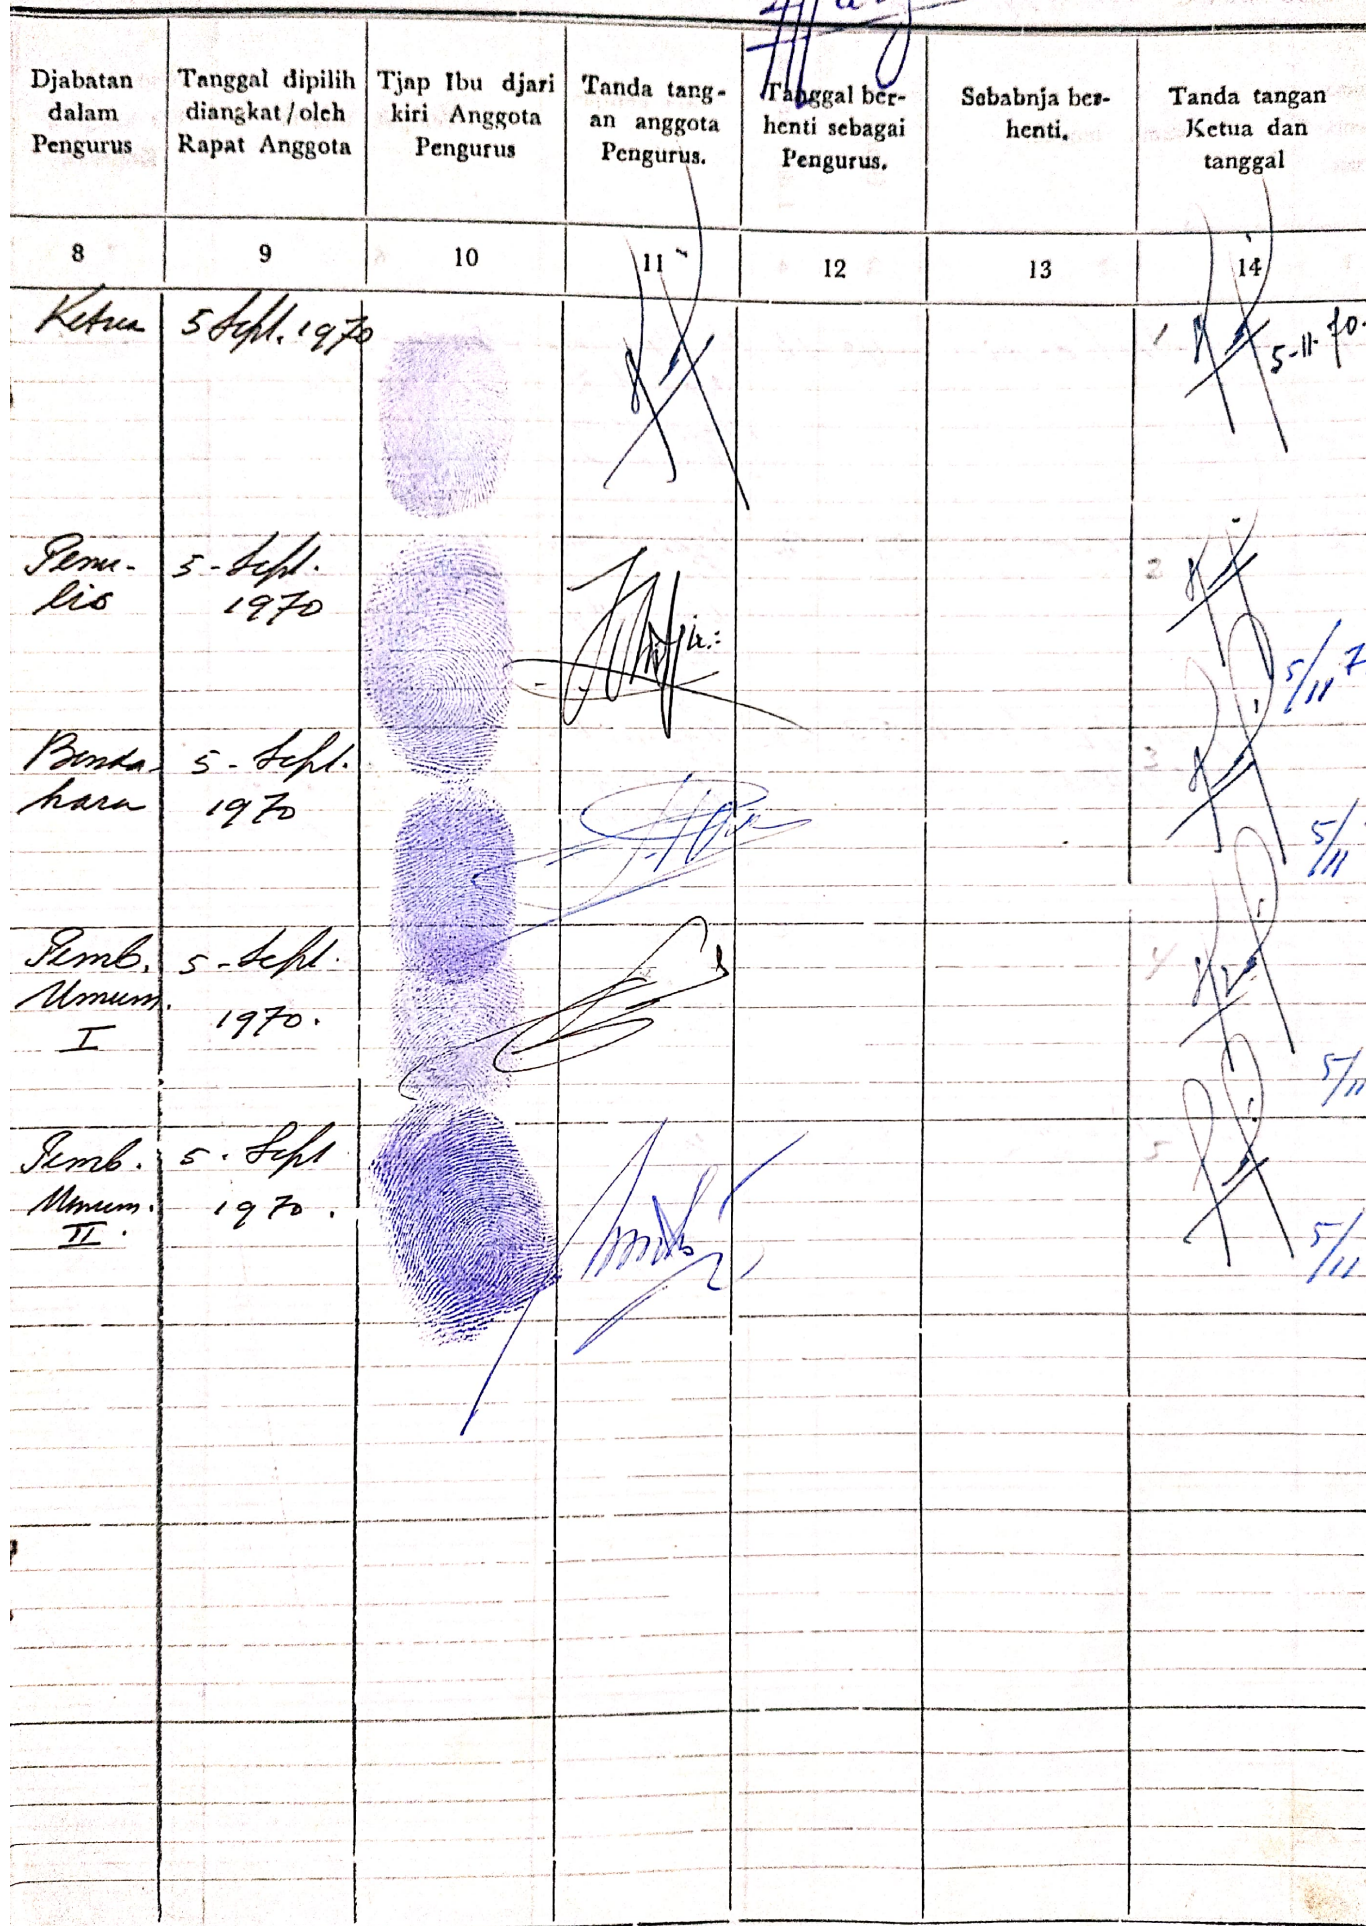 Djabatan dalam Pengurus
Tanggal dipilih diangkat/oleh Rapat Anggota
Tjap Ibu djari kiri Anggota Pengurus
Tanda tang-an anggota Pengurus.
Tanggal ber-henti sebagai Pengurus.
Sebabnja ber-henti.
Tanda tangan Ketua dan tanggal
8 9 10 11 12 13 14
Ketua 5 Sept. 1970 1 5-11-70.
Penu- 5 - Sept. 2
lis 1970
5/11 7
Benda- 5 - Sept. 3
hara 1970
5/11
Pemb. 5 - Sept. 4
Umum.
I 1970.
5/11
Pemb. 5 - Sept 5
Umum. 1970.
II.
5/11